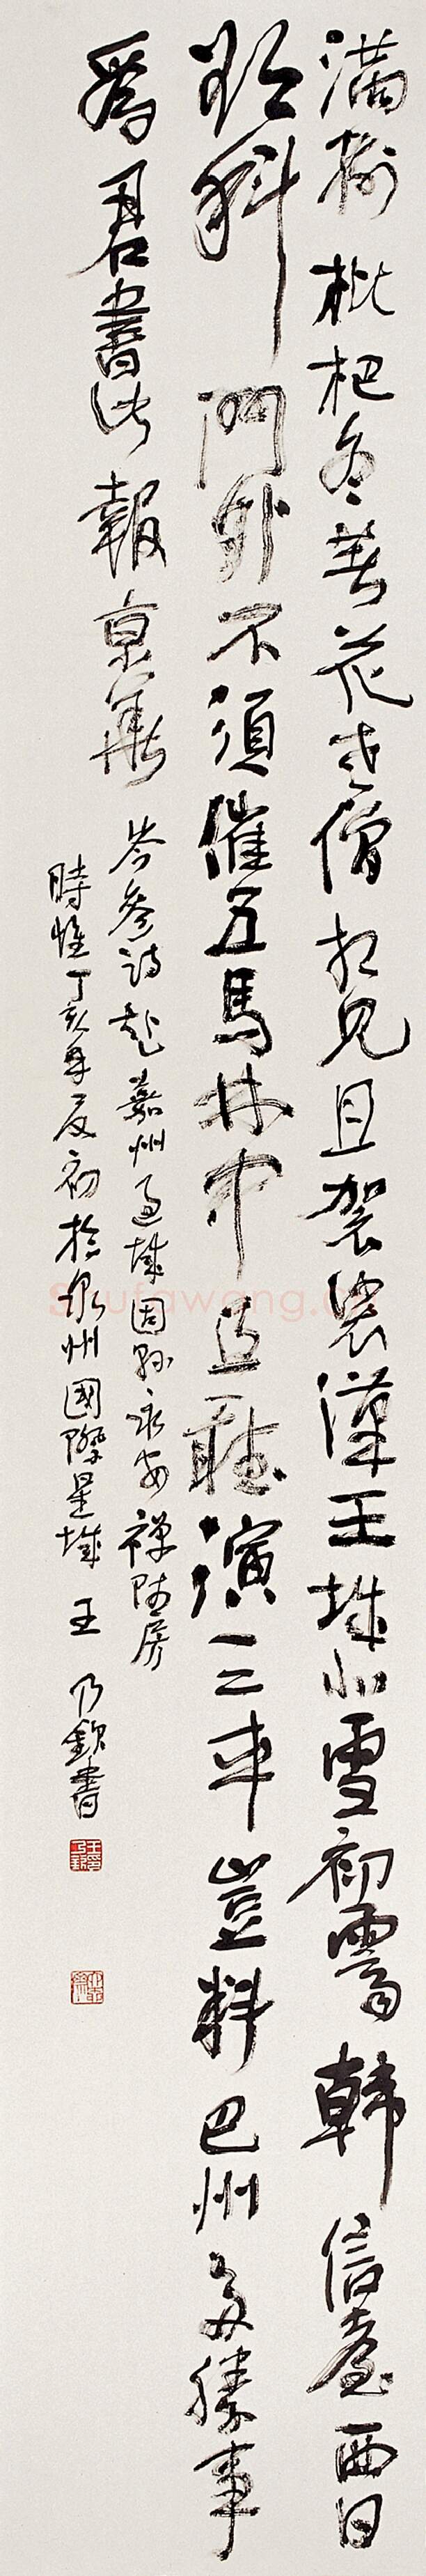 滿樹枇杷冬著花老僧相見且袈裟漢王城北雪初霽韓信臺西日
欲斜門外不須催五馬林中且聽演三車豈料巴州多勝事
爲君書此報京華
岑參詩赴嘉州過城固縣永安禪師房
時惟丁亥年夏初於泉州國際星城 王乃欽書